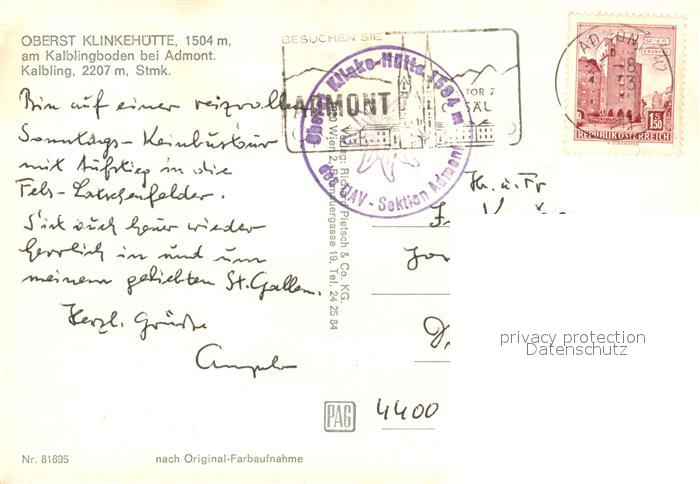 OBERST KLINKEHÜTTE, 1504 m,
am Kalblingboden bei Admont.
Kalbling, 2207 m, Stmk.
Bin auf einer reizvollen
Sonntags-
mit Aufstieg in die
Fels-Latschenfelder.
S'ist auch heuer wieder
herrlich in und um
meinem geliebten St. Gallen.
Herzl. Grüsse
BESUCHEN SIE
ADMONT
TOR Z
GESÄU
Oberst Klinke-Hütte 1504 m
des ÖAV - Sektion Admont
ADMONT
WIEN
1.50
REPUBLIK ÖSTERREICH
Verlag: Richard Pietsch & Co. KG.
Wien 2, gasse 19, Tel. 24 25 84
Hr. u. Fr.
4400
PAG
privacy protection
Datenschutz
Nr. 81695
nach Original-Farbaufnahme